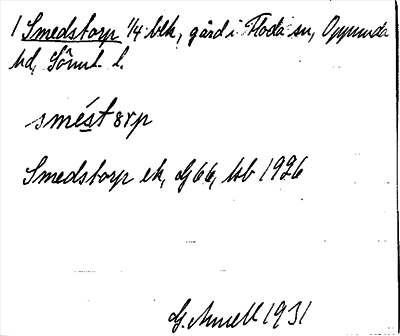 1 Smedstorp 1/4 blk, gård i Floda sn, Oppunda
hd, Sörml. l.
smés̲tørp
Smedstorp ek, Gj 66, lsb 1926
G. Amell 1931